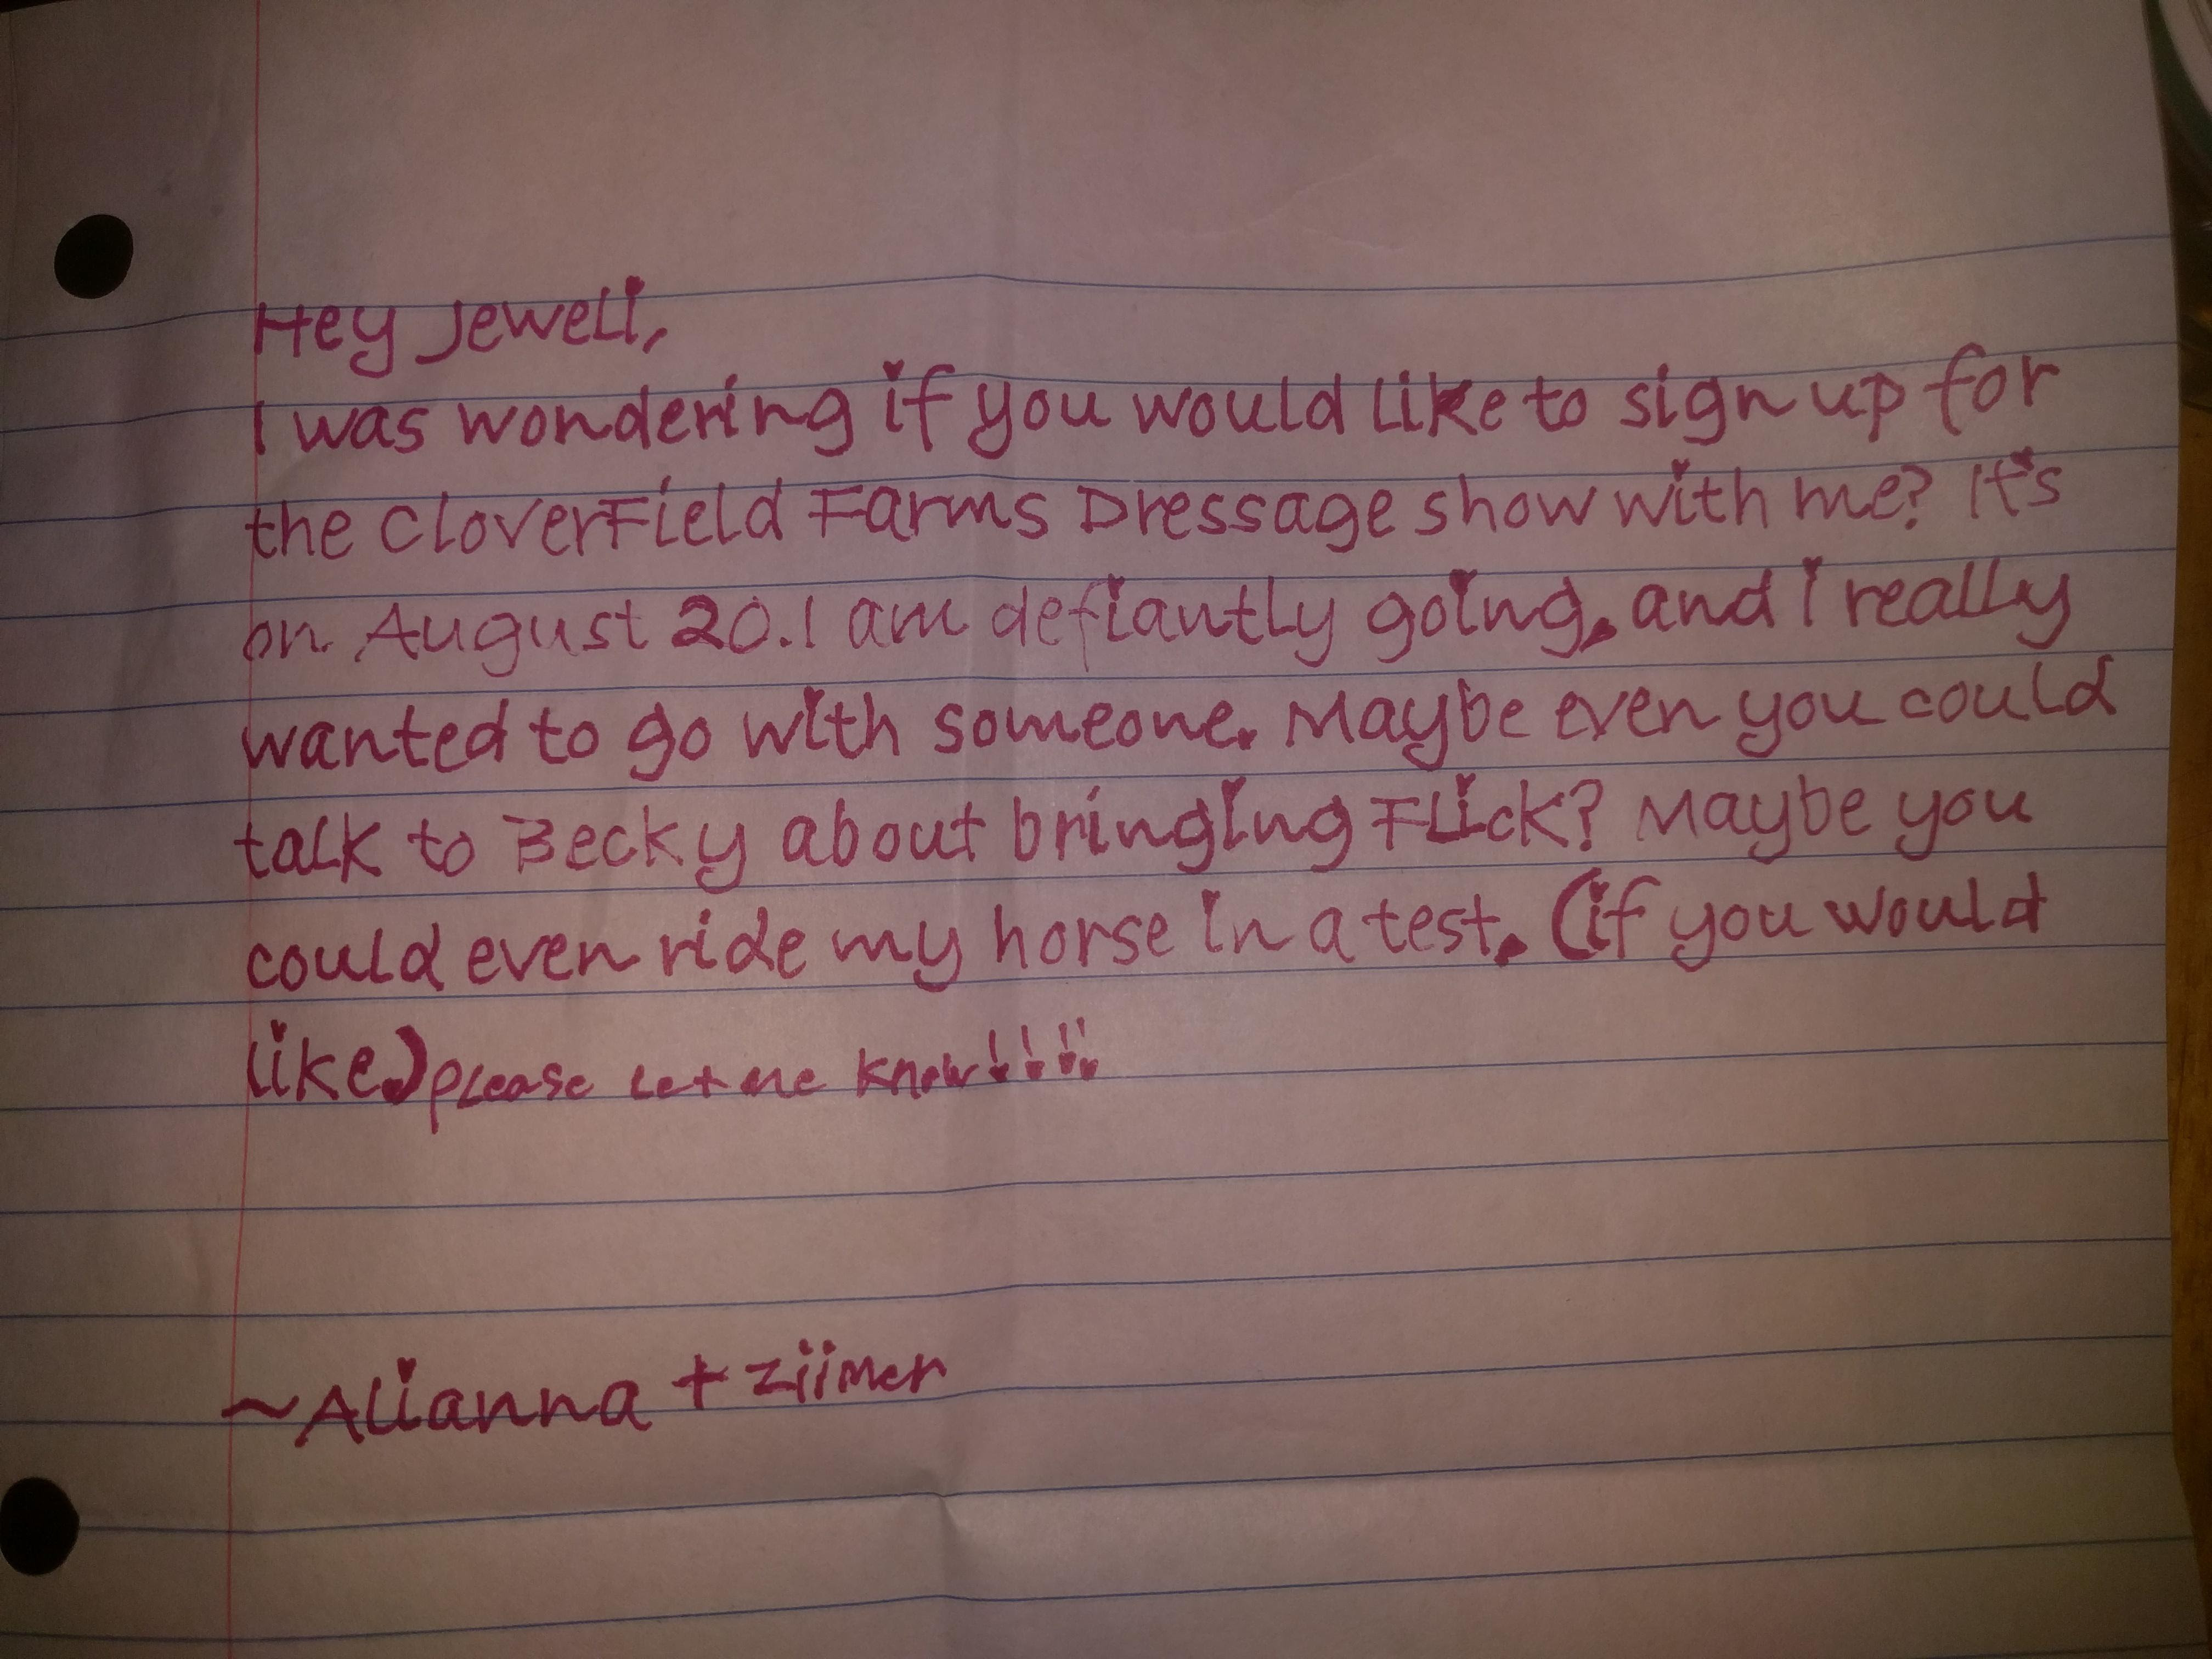 Hey Jeweli,
I was wondering if you would like to sign up for
the CloverField Farms Dressage show with me? It's
on August 20. I am defiantly going, and I really
wanted to go with someone. Maybe even you could
talk to Becky about bringing Flick? Maybe you
could even ride my horse in a test. (if you would
like.) please let me know!!!!
~Alianna + Ziimer